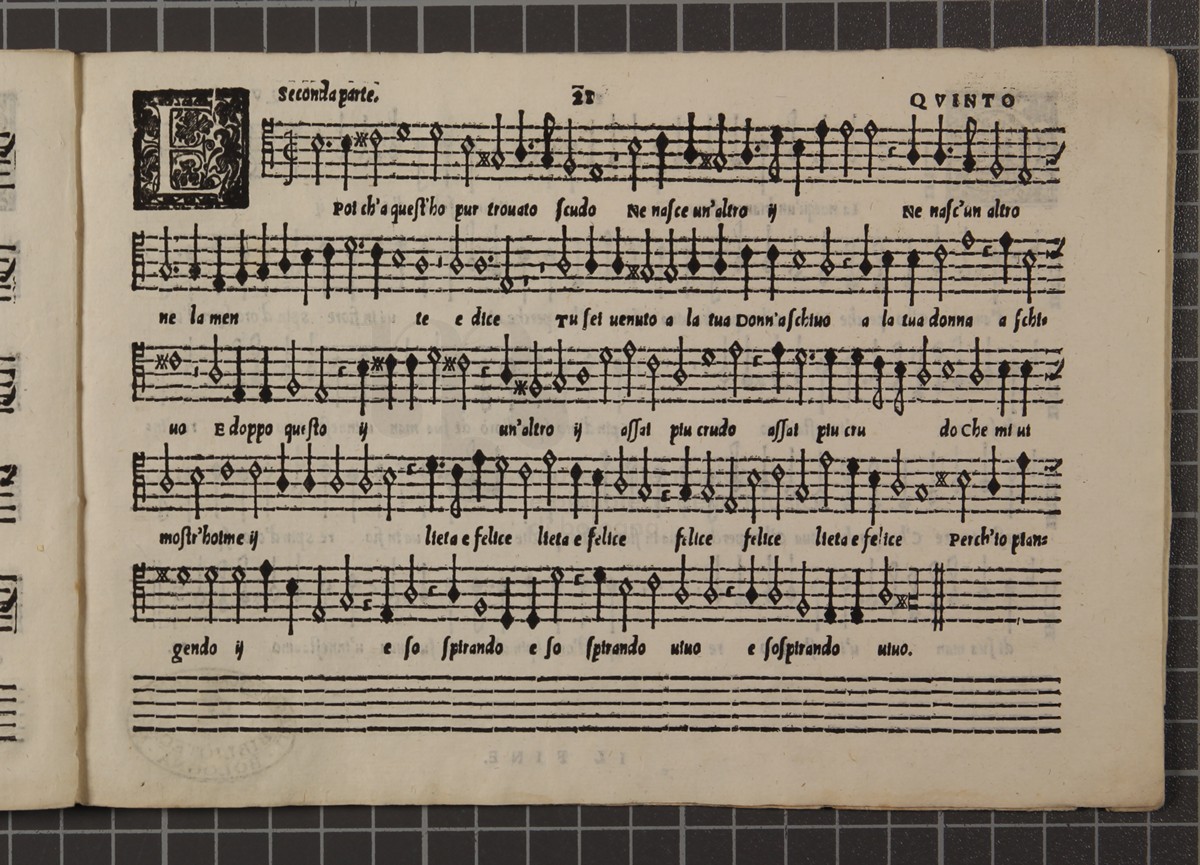 Seconda parte. 21 QVINTO
E Poi ch'a quest'ho pur trouato scudo Ne nasce un'altro ij Ne nasc'un altro
ne la men te e dice Tu sei uenuto a la tua Donn'aschiuo a la tua donna a schi-
uo E doppo questo ij un'altro ij assai piu crudo assai piu cru do Che mi ui
mostr'hoime ij lieta e felice lieta e felice felice felice lieta e felice Perch'io pian-
gendo ij e so spirando e so spirando uiuo e sospirando uiuo.